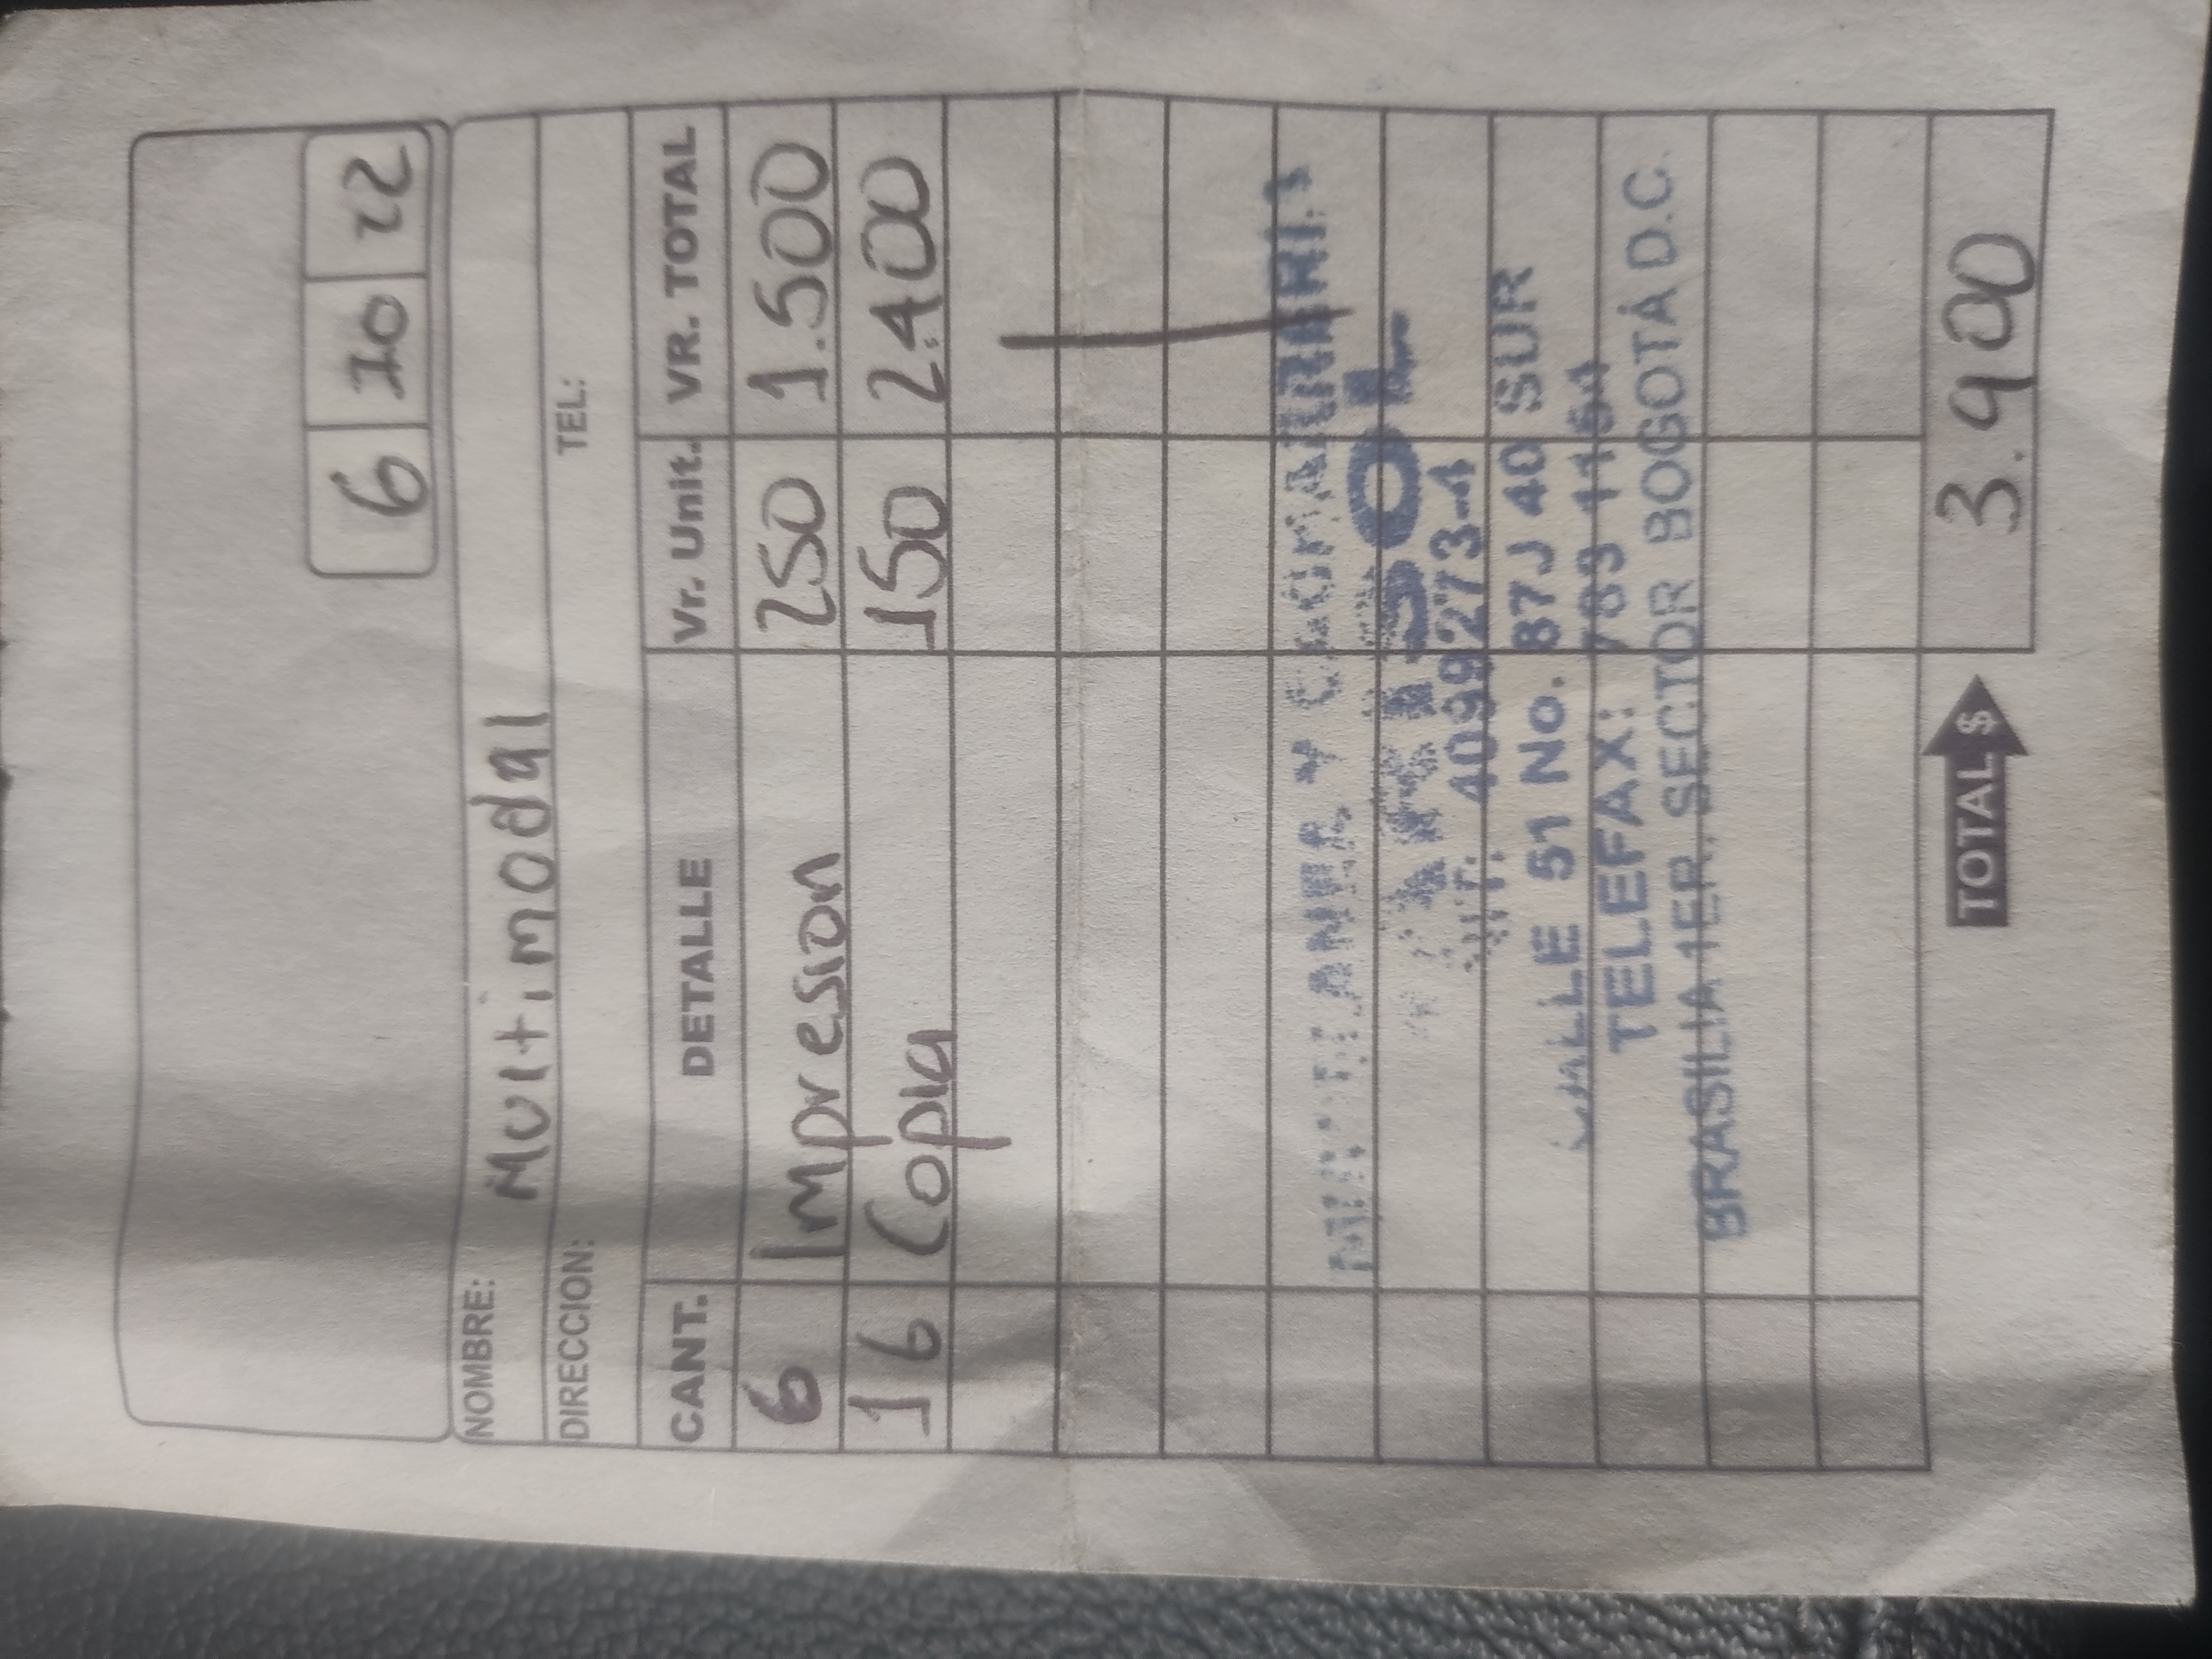 6 10 22
NOMBRE: Multimodal
DIRECCION: TEL:
CANT. DETALLE Vr. Unit. VR. TOTAL
6 Impresion 250 1.500
16 Copia 150 2.400
Y
NIT. 4099273-4
CALLE 51 No. 87J 40 SUR
TELEFAX: 783
BRASILIA 1ER. SECTOR BOGOTÁ D.C.
TOTAL $ 3.900